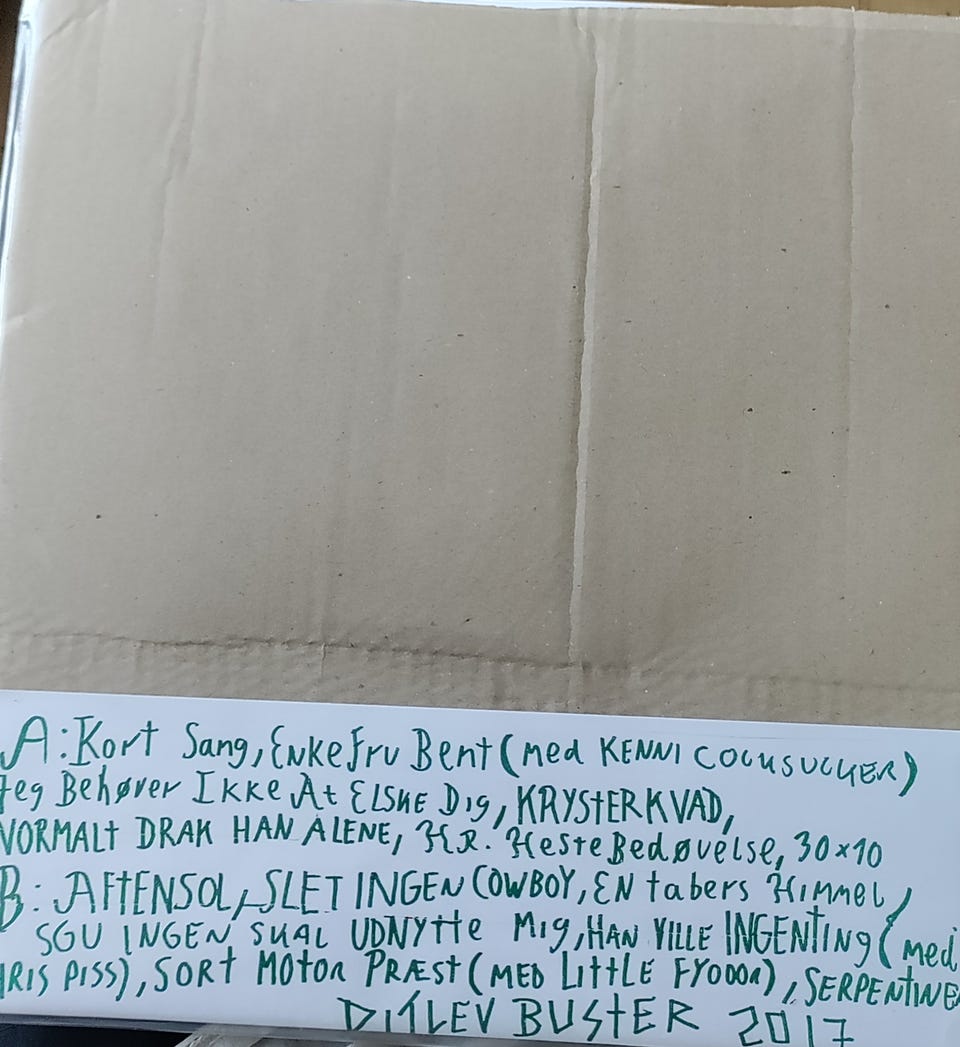 A: Kort Sang, Enkefru Bent (med KENNI COCKSUCKER)
Jeg Behøver Ikke At ELSKE Dig, KRYSTERKVAD,
NORMALT DRAK HAN ALENE, HR. HesteBedøvelse, 30×10
B: AFTENSOL, SLET INGEN COWBOY, EN tabers Himmel,
SGU INGEN SKAL UDNYTTE Mig, HAN VILLE INGENTING (med
IRIS PISS), SORT MOTOR PRÆST (MED LITTLE FYODOR), SERPENTINE
DITLEV BUSTER 2017